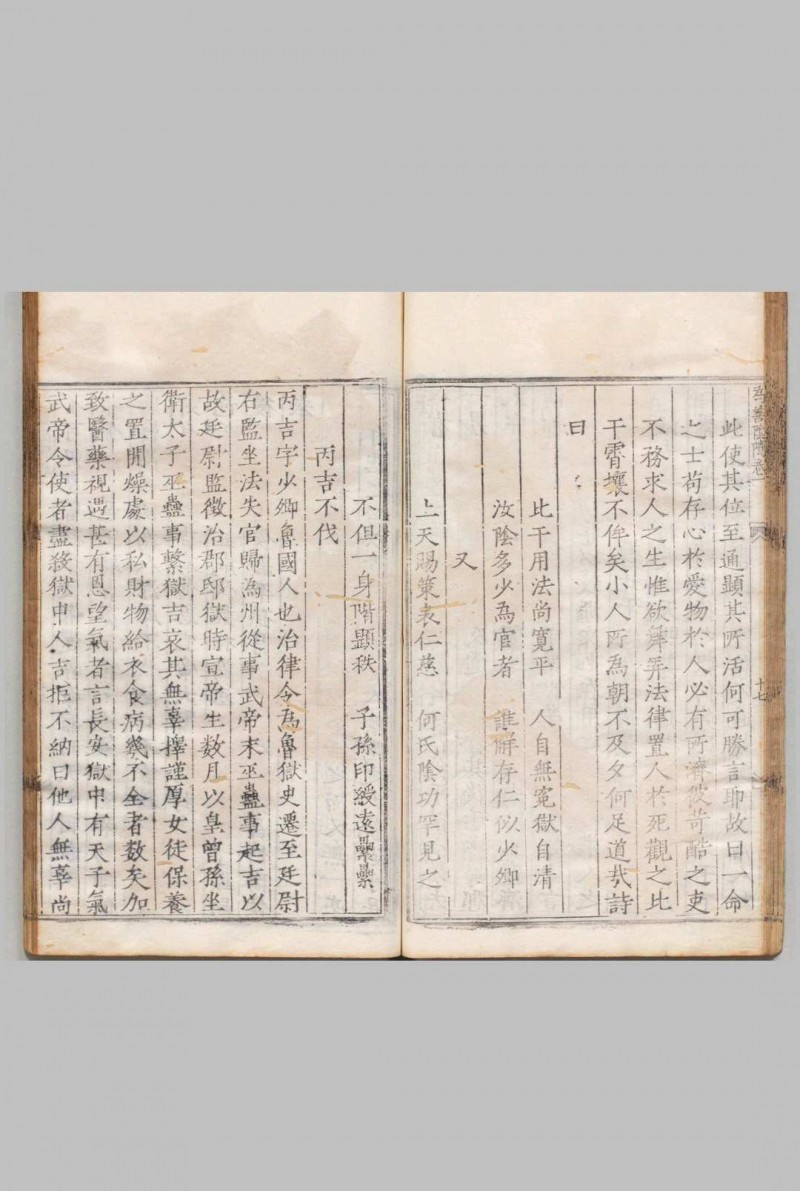 此使其位至通顯其所活何可勝言耶故曰一命
之士苟存心於愛物於人必有所濟彼苛酷之吏
不務求人之生惟欲舞弄法律置人於死觀之比
干霄壤不侔矣小人所為朝不及夕何足道哉詩
曰
比干用法尚寬平 人自無冤獄自清
汝陰多少為官者 誰解存仁似少卿
又
上天賜策表仁慈 何氏陰功罕見之
不但一身階顯秩 子孫印綬遠纍纍
丙吉不伐
丙吉字少卿魯國人也治律令為魯獄史遷至廷尉
右監坐法失官歸為州從事武帝末巫蠱事起吉以
故廷尉監徵治郡邸獄時宣帝生數月以皇曾孫坐
衛太子巫蠱事繫獄吉哀其無辜擇謹厚女徒保養
之置閒燥處以私財物給衣食病幾不全者數矣加
致醫藥視遇甚有恩望氣者言長安獄中有天子氣
武帝令使者盡殺獄中人吉拒不納曰他人無辜尚